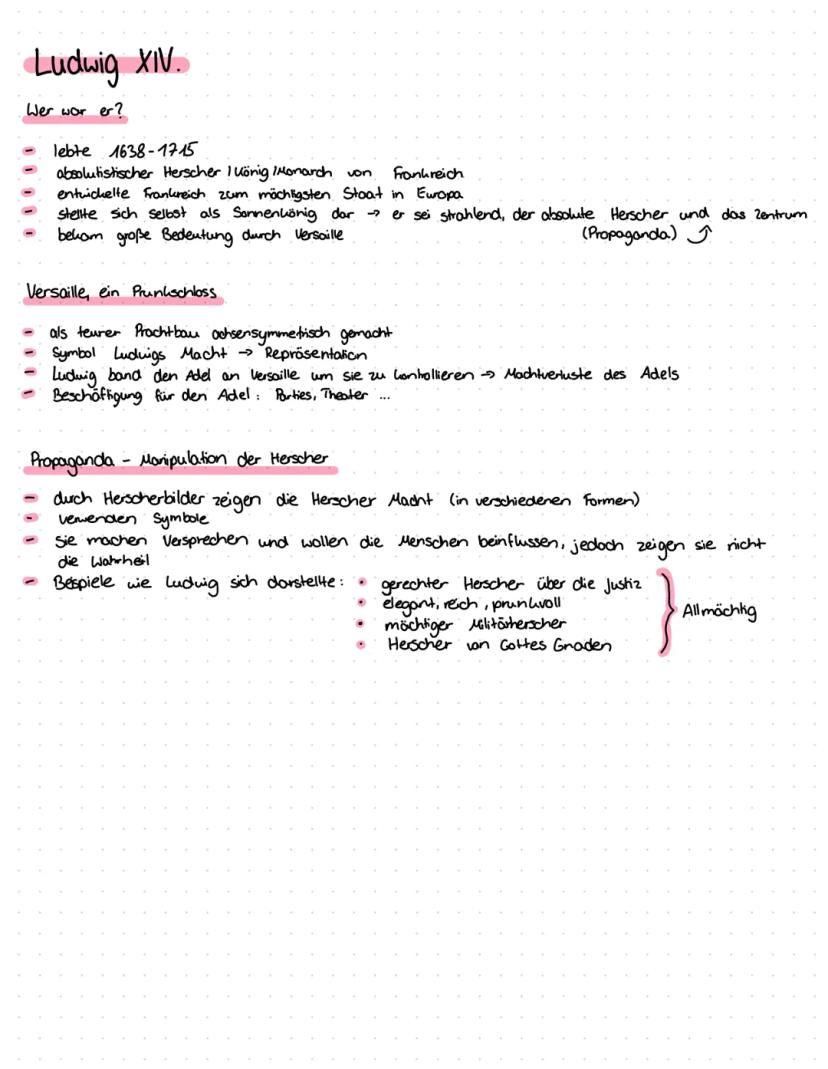 Ludwig XIV.
Wer war er?
- lebte 1638-1715
- absolutistischer Herscher / König / Monarch von Frankreich
- entwickelte Frankreich zum mächtigsten Staat in Europa
- stellte sich selbst als Sonnenkönig dar → er sei strahlend, der absolute Herscher und das Zentrum
- bekam große Bedeutung durch Versaille (Propaganda)
Versaille, ein Prunkschloss
- als teurer Prachtbau achsensymmetrisch gemacht
- Symbol Ludwigs Macht → Repräsentation
- Ludwig band den Adel an Versaille um sie zu kontrollieren → Machtverluste des Adels
- Beschäftigung für den Adel: Parties, Theater ...
Propaganda - Manipulation der Herscher
- durch Herscherbilder zeigen die Herscher Macht (in verschiedenen Formen)
- verwenden Symbole
- sie machen Versprechen und wollen die Menschen beinflussen, jedoch zeigen sie nicht
die Wahrheit
- Bespiele wie Ludwig sich darstellte: • gerechter Herscher über die Justiz
• elegant, reich, prunkvoll
• mächtiger Militärherscher
• Herscher von Gottes Gnaden
Allmächtig